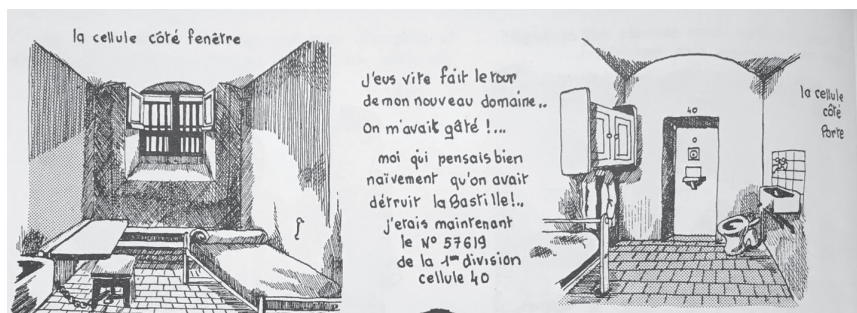 la cellule côté fenêtre
J'eus vite fait le tour
de mon nouveau domaine..
On m'avait gâté !...
moi qui pensais bien
naïvement qu'on avait
détruit la Bastille !..
j'étais maintenant
le N° 57619
de la 1ère division
cellule 40
40
la cellule
côté
Porte